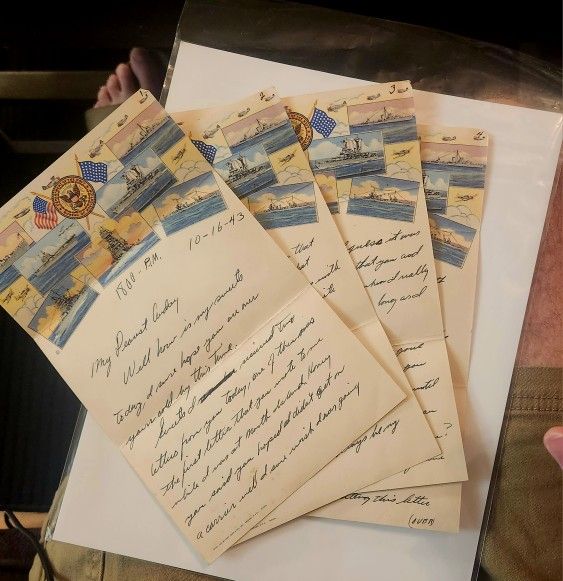 1
1800 - P.M.
10-16-43
My Dearest
Well how is my sweets
today, I sure hope you are over
your cold by this time.
Sweets I received two
letters from you today, one of them was
the first letter that you wrote to me
while I was at North Island, Honey
you said you hoped I didn't get on
a carrier well I sure wish I was going
2
that
with
3
guess it was
that you and
had really
long and
4
you
until
?
always be my
getting this letter
(over)